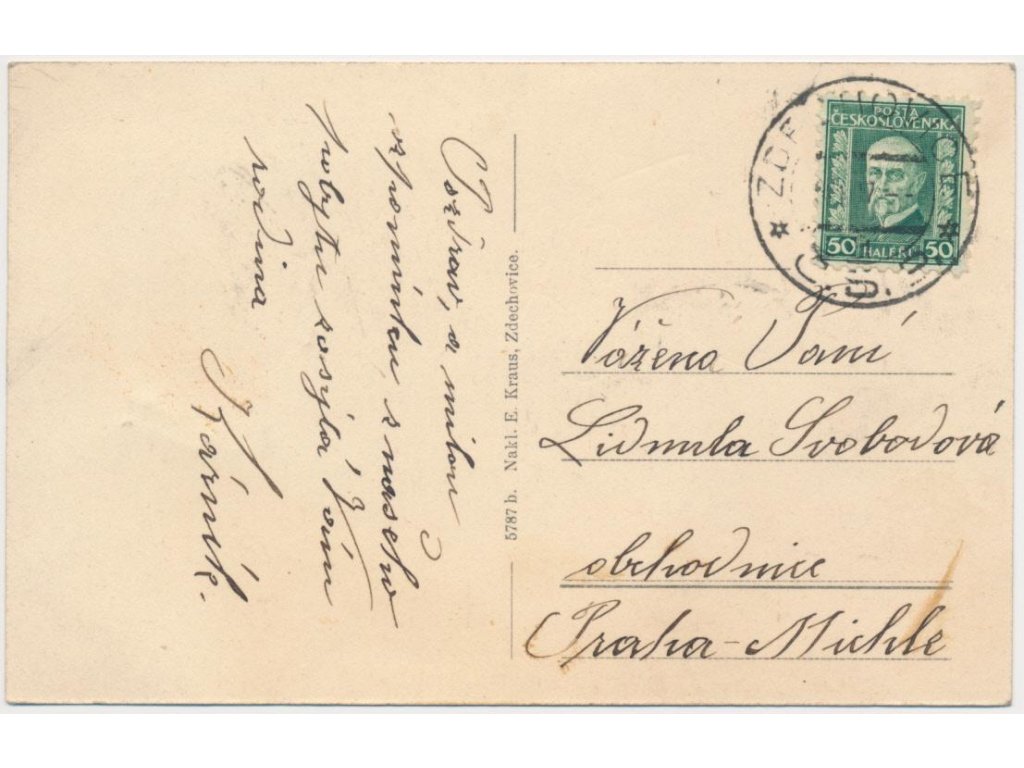 Pozdrav, a milou
vzpomínku z našeho
pobytu zasýlá Vám
rodina
Kárník.
5787 b. Nakl. E. Kraus, Zdechovice.
POŠTA
ČESKOSLOVENSKÁ
50 HALÉŘŮ 50
Vážená Paní
Lidmila Svobodová
obchodnice
Praha-Michle